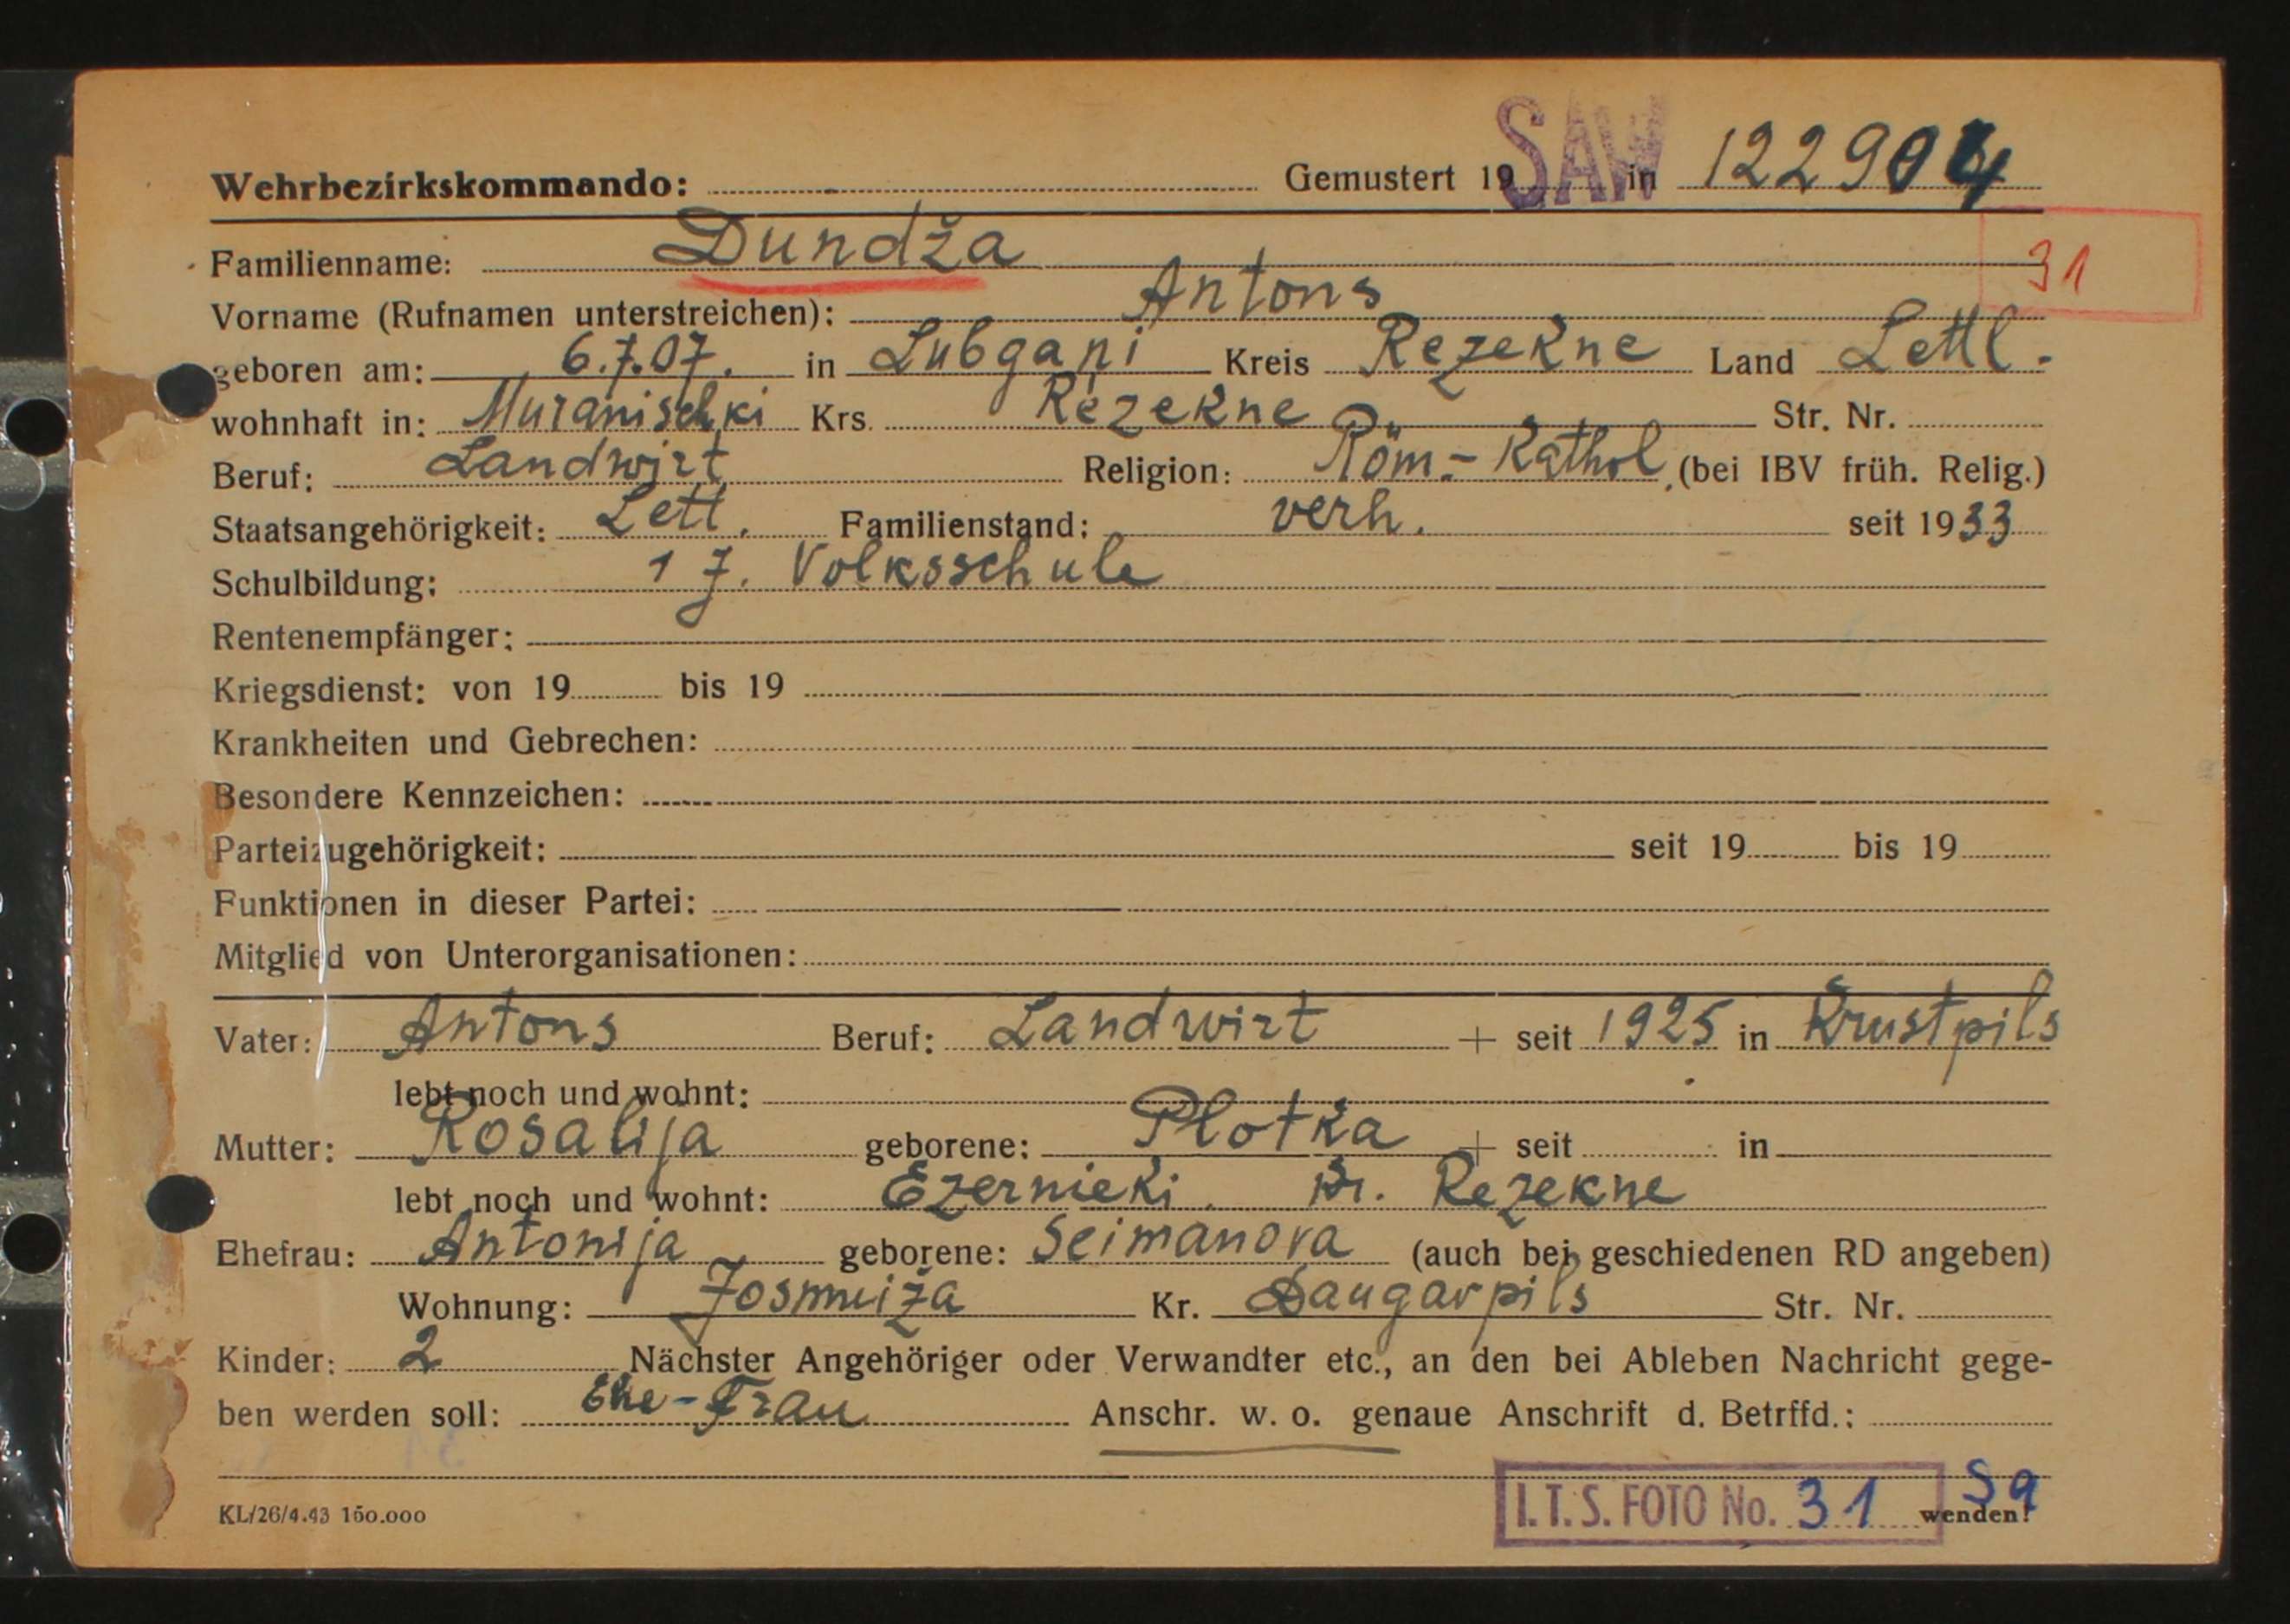 Wehrbezirkskommando: Gemustert 19 SAW in 122904
Familienname: Dundža
31
Vorname (Rufnamen unterstreichen): Antons
geboren am: 6.7.07. in Lubgaņi Kreis Rezekne Land Lettl.
wohnhaft in: Muranischki Krs. Rezekne Str. Nr.
Beruf: Landwirt Religion: Röm.-Kathol (bei IBV früh. Relig.)
Staatsangehörigkeit: Lett. Familienstand: verh. seit 1933
Schulbildung: 1 J. Volksschule
Rentenempfänger:
Kriegsdienst: von 19 bis 19
Krankheiten und Gebrechen:
Besondere Kennzeichen:
Parteizugehörigkeit: seit 19 bis 19
Funktionen in dieser Partei:
Mitglied von Unterorganisationen:
Vater: Antons Beruf: Landwirt + seit 1925 in Krustpils
lebt noch und wohnt:
Mutter: Rosalija geborene: Plotka + seit in
lebt noch und wohnt: Ezernieki Kr. Rezekne
Ehefrau: Antonija geborene: Seimanova (auch bei geschiedenen RD angeben)
Wohnung: Josmuiža Kr. Daugavpils Str. Nr.
Kinder: 2 Nächster Angehöriger oder Verwandter etc., an den bei Ableben Nachricht gege-
ben werden soll: Ehe-Frau Anschr. w. o. genaue Anschrift d. Betrffd.:
KL/26/4.43 150.000 I.T.S. FOTO No. 31 wenden! Sa